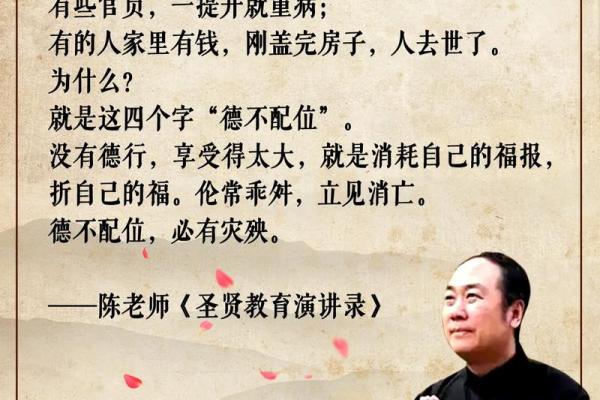 有些官员，一提升就重病；
有的人家里有钱，刚盖完房子，人去世了。
为什么？
就是这四个字“德不配位”。
没有德行，享受得太大，就是消耗自己的福报，
折自己的福。伦常乖舛，立见消亡。
德不配位，必有灾殃。
——陈老师《圣贤教育演讲录》